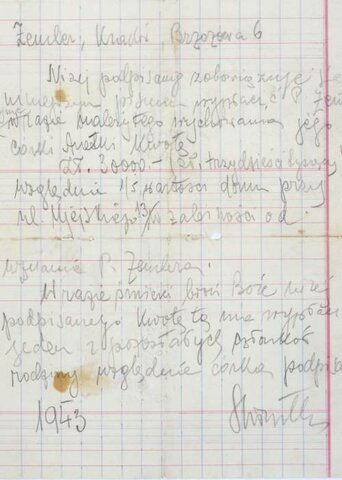 Zemler, Kraków, Brzozowa 6
Niżej podpisany zobowiązuje się
niniejszym pismem wypłacić P.
w razie należytego wychowania jego
córki kwotę
Zł. 30000.– (Zł. trzydzieści tysięcy)
względnie 1/5 wartości domu przy
ul. Miejskiej 13/ w zależności od
uznania P. Zemlera.
W razie śmierci broń Boże niżej
podpisanego kwotę tą ma wypłacić
jeden z pozostałych członków
rodziny względnie córka podpisa
1943